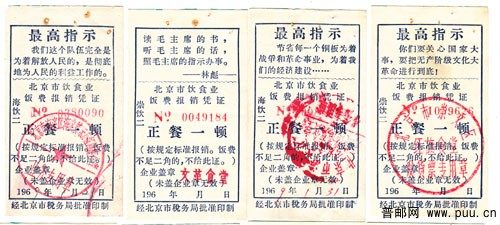 最高指示
我们这个队伍完全是
为着解放人民的,是彻底
地为人民的利益工作的。
北京市饮食业
饭费报销凭证
海饮二
No 0380090
正餐一顿
(按规定标准报销。饭费
不足二角的,不给此证。)
企业盖章
(未盖企业章无效)
196 年 月 日
经北京市税务局批准印制
读毛主席的书,
听毛主席的话,
照毛主席的指示办事。
——林彪——
北京市饮食业
饭费报销凭证
No 0049184
正餐一顿
(按规定标准报销。饭费
不足二角的,不给此证。)
企业盖章 文革食堂
(未盖企业章无效)
196 年 月 日
经北京市税务局批准印制
最高指示
节省每一个铜板为着
战争和革命事业,为着我
们的经济建设……
北京市饮食业
饭费报销凭证
海饮二
No
正餐一顿
(按规定标准报销。饭费
不足二角的,不给此证。)
企业盖章
(未盖企业章无效)
1969年 1月31日
经北京市税务局批准印制
最高指示
你们要关心国家大
事,要把无产阶级文化大
革命进行到底!
北京市饮食业
饭费报销凭证
海饮二
No
正餐一顿
(按规定标准报销。饭费
不足二角的,不给此证。)
企业盖章
(未盖企业章无效)
196 年 月 日
经北京市税务局批准印制
普邮网 www.puu.cn